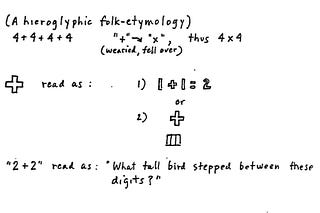 (A hieroglyphic folk-etymology)
4+4+4+4 "+"→"x", thus 4x4
(wearied, fell over)
+ read as: 1) 1+1=2
or
2) +
"2+2" read as: "What tall bird stepped between these
digits?"